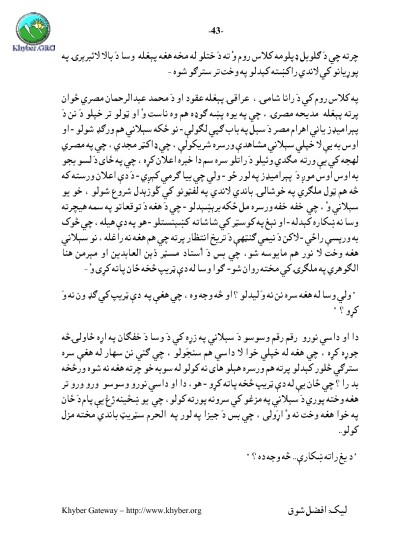 -43-
Khyber.ORG
چرته چې دَ ګلوبل ډپلومه کلاس روم وُ ته دَ ختلو له مخه هغه پېغله وسا دَ بالا لائبرېرۍ په
پوړيانو کې لاندې راکښته کېدلو په وخت تر سترګو شوه -
په کلاس روم کې دَ رانا شامۍ ، عراقۍ پېغله عقود او دَ محمد عبدالرحمان مصري ځوان
پرته پېغله مديحه مصرۍ ، چې په يوه پښه ګوډه هم وه ناسته وُ او ټولو تر خپلو دَ نن دَ
پېراميډز يانې اهرام مصر دَ سېل په باب ګېې لګولې - نو ځکه سېلاني هم ورګډ شولو - او
اوس به يې لا خپلې سېلانۍ مشاهدې ورسره شريکولې ، چې ډاکټر مجدي ، چې په مصري
لهجه کې يې ورته مګدي وئيلو دَ راتلو سره سم دا خبره اعلان کړه ، چې په ځاى دَ لسو بجو
به اوس اوس موږ دَ پېراميډز په لور ځو - ولې چې بيا ګرمي کېږي - دَ دې اعلان ورسته که
څه هم ټول ملګري په خوشالۍ باندې لاندې په لفټونو کې کُوزېدل شروع شولو ، خو يو
سېلاني وُ ، چې خفه خفه ورسره مل ځکه برېښېدلو - چې دَ هغه دَ توقعاتو په سمه هېچرته
وسا نه ښکاره کېدله - او نېغ په کوسټر کې شاشاته کښېنستلو - هو په دې هيله ، چې ځوک
به ورپسې راځي - لاکن دَ نيمې ګنټهې دَ تريخ انتظار پرته چې هم هغه نه راغله ، نو سېلاني
هغه وخت لا نور هم مايوسه شو ، چې بس دَ استاد مسټر ذين العابدين او ميرمن هنا
الګوهري په ملګرۍ کې مخته روان شو - ګوا وسا له دې ټريپ څخه ځان پاته کړى وُ -
" ولې وسا له هغه سره نن نه وَ ليدلو ؟ او څه وجه وه ، چې هغې په دې ټريپ کې ګډون نه وَ
کړو ؟ "
دا او داسې نورو رقم رقم وسوسو دَ سېلاني په زړه کې دَ وسا دَ خفګان په اړه ځاولۍ څه
جوړه کړه ، چې هغه له خپلې خوا لا داسې هم سنجولو ، چې ګنې نن سهار له هغې سره
سترګې څلور کېدلو پرته هم ورسره هېلو هاى نه کولو له سوبه خو چرته هغه نه شوه ورځخه
بد را ؟ چې ځان يې له دې ټريپ څخه پاته کړو - هو ، دا او داسې نورو وسوسو ورو ورو تر
هغه وخته پورې دَ سېلاني په مزغو کې سرونه پورته کولو ، چې يو ښځينه ژغ يې پام دَ ځان
په خوا هغه وخت نه وُ اړولى ، چې بس دَ جيزا په لور په الحرم سټريټ باندې مخته مزل
کولو..
" د يغ راته ښکاري.. څه وجه ده ؟ "
Khyber Gateway – http://www.khyber.org
ليک: افضل شوق